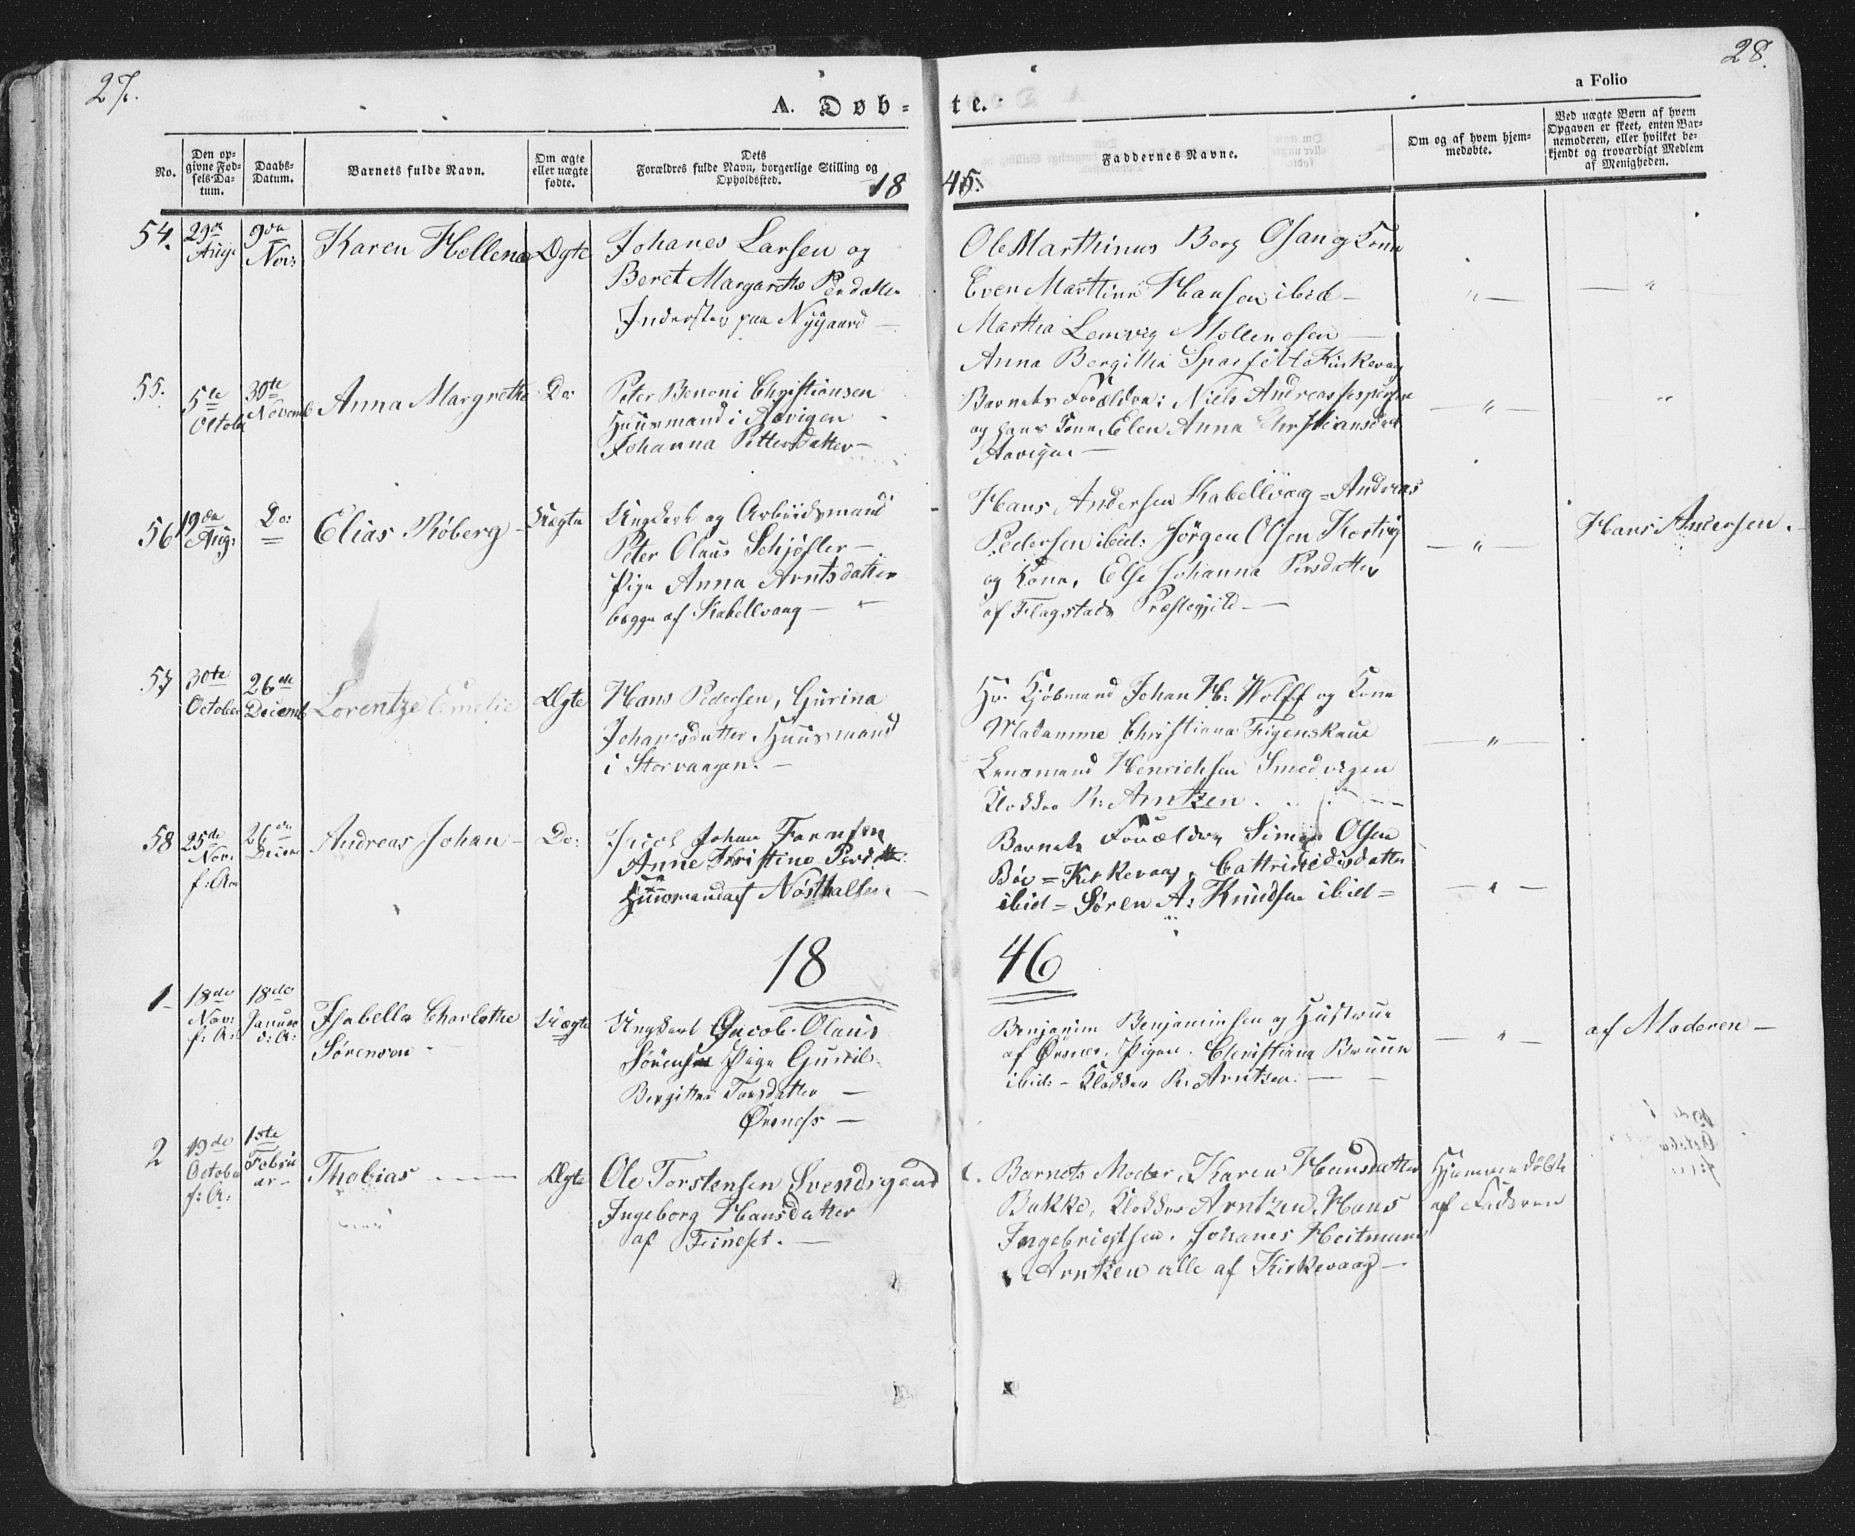 27.
28.
A. Døb-
te.
a Folio
No.
Den op-
givne Fød-
sels-Da-
tum.
Daabs-
Datum.
Barnets fulde Navn.
Om ægte
eller uægte
fødte.
Dets
Forældres fulde Navn, borgerlige Stilling og
Opholdssted.
Faddernes Navne.
Om og af hvem hjem-
medøbte.
Ved uægte Børn af hvem
Opgaven er skeet, enten Bar-
nemoderen, eller hvilket be-
kjendt og troværdigt Medlem
af Menigheden.
18
45.
54.
29de
Aug:
9da
Nov:
Karen Hellena
Ægte
Johanes Larsen og
Beret Margarethe Persdatter
Inderster paa Nygaard —
Ole Marthinus Berg Osan og Kone
Even Marthin Hansen ibid —
Martha Lemvig Mollenosen —
Anna Bergitha Kirkevag
55.
5te
Octobr
30te
Novemb
Anna Margrethe
Do:
Peter Benoni Christiansen
Huusmand i Aavigen
Johanna Pettersdatter —
Barnets Forældre: Niels Andreas Jespersen
og hans Kone, Elen Anna Christiansdat
Aavigen —
— " —
"
56
19da
Aug:
Do:
Elias Röberg —
Uægte
Ungkarl og Arbeidsmand
Peter Olaus Schjøfler —
Pige Anna Arntsdatter
begge af Kabellvaag — "
Hans Andersen Kabellvag = Andreas
Pedersen ibid: Jörgen Olsen
og Kone, Else Johanna Persdatter
af Flagstads Præstegjild —
— " —
Hans Andersen. —
57
30te
October
26de
Decemb
Lorentze Emelie
Ægte
Hans Pedersen, Gurina
Johannsdatter. Huusmand
i Storvaagen. —
Hr. Kjöbmand Johan H: Wolff og Kone
Madamme Christiana Figenskaue
Lensmand Henrichsen Smedvigen
Klokker R: Arntzen.
— " —
58
25de
Nov:
f: Aa
26de
Decem
Andreas Johan —
Do:
Jacob Johan
Anne Kristine Persdatter.
Huusmand af
Barnets Forældre Simon Olsen
= Kirkevaag,
ibid = Sören A: Knudsen ibid =
— " —
18
46
1
18de
Nov:
f: A:
18de
Januar
d: A:
Isabella Charlothe
Sørensen —
Uægte
Ungkarl Jacob Olaus
Sörensen Pige
Bergitha Torsdatter —
Örsness —
Benjamin Benjaminsen og Hustrue
af Örsnes, Pigen. Christiana Bruun
ibid: — Klokker R: Arntzen. —
— " —
af Moderen —
2
19de
October
f: A:
1ste
Febru
ar —
Thobias
Ægte
Ole Torstensen
Ingeborg Hansdatter
af Fineset. —
Barnets Moder, Karen Hansdatter
Bakke, Klokker Arntzen, Hans
Ingebrigtsen, Johanes Heitmann
Arntzen alle af Kirkevaag —
Hjemmedøbte
af Faderen